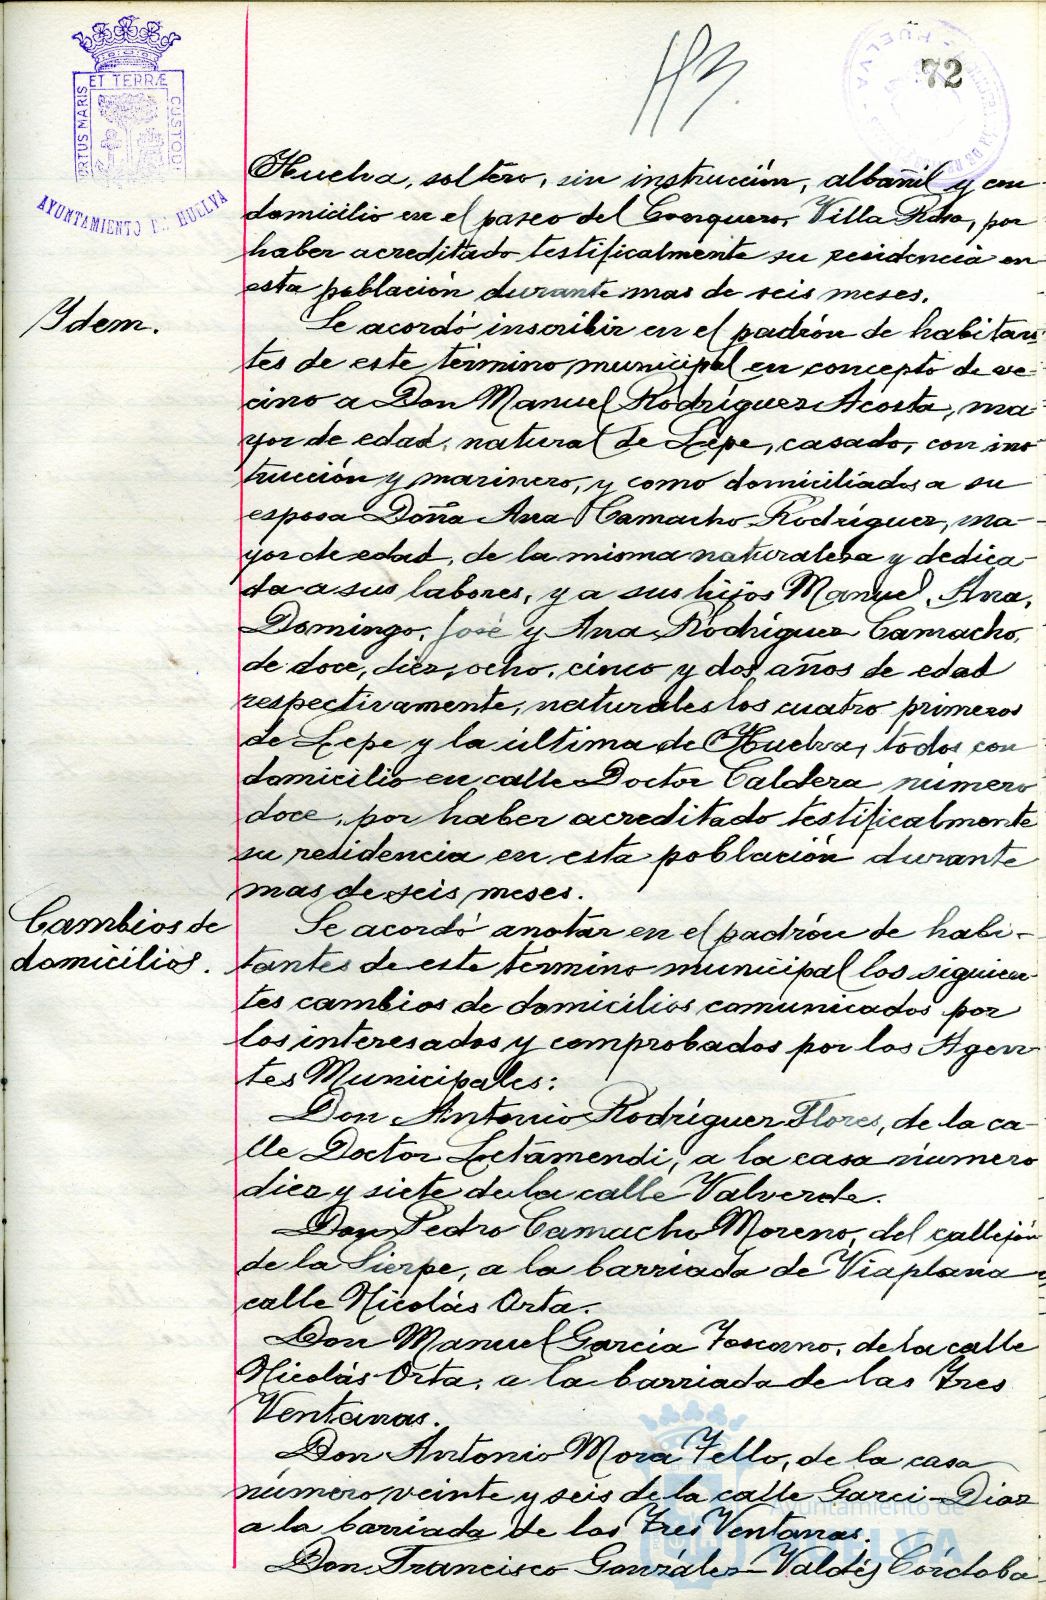 PORTUS MARIS ET TERRÆ CUSTOD
AYUNTAMIENTO DE HUELVA
113.
72
HUELVA
Huelva, soltero, sin instrucción, albañil y con
domicilio en el paseo del Conquero, Villa Rosa, por
haber acreditado testificalmente su residencia en
esta población durante mas de seis meses.
Ydem.
Se acordó inscribir en el padrón de habitan-
tes de este término municipal en concepto de ve-
cino a Don Manuel Rodríguez Acosta, ma-
yor de edad, natural de Lepe, casado, con ins-
trucción y marinero, y como domiciliados a su
esposa Doña Ana Camacho Rodríguez, ma-
yor de edad, de la misma naturaleza y dedica-
da a sus labores, y a sus hijos Manuel, Ana,
Domingo, José y Ana Rodríguez Camacho,
de doce, diez, ocho, cinco y dos años de edad
respectivamente, naturales los cuatro primeros
de Lepe y la última de Huelva, todos con
domicilio en calle Doctor Caldera número
doce, por haber acreditado testificalmente
su residencia en esta población durante
mas de seis meses.
Cambios de
domicilios.
Se acordó anotar en el padrón de habi-
tantes de este término municipal los siguien-
tes cambios de domicilios comunicados por
los interesados y comprobados por los Agen-
tes Municipales:
Don Antonio Rodríguez Flores, de la ca-
lle Doctor Letamendi, a la casa número
diez y siete de la calle Valverde.
Don Pedro Camacho Moreno, del callejón
de la Sierpe, a la barriada de Viaplana
calle Nicolás Orta.
Don Manuel García Toscano, de la calle
Nicolás Orta, a la barriada de las Tres
Ventanas.
Don Antonio Mora Tello, de la casa
número veinte y seis de la calle Garci-Diaz
a la barriada de las Tres Ventanas.
Don Francisco González-Valdés Córdoba
Ayuntamiento de
HUELVA